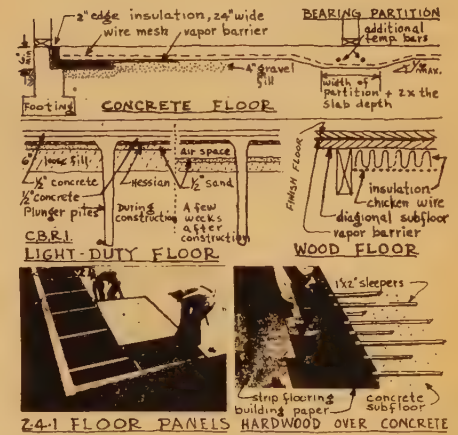 2" edge insulation, 24" wide
wire mesh
vapor barrier
BEARING PARTITION
additional
temp bars
4" gravel
fill
width of
partition + 2x the
slab depth
MAX.
FOOTING
CONCRETE FLOOR
6" loose fill
½" concrete
½" concrete
Plunger piles
Hessian
During
construction
Air space
½" sand
A few
weeks
after
construction
C.B.R.I.
LIGHT-DUTY FLOOR
FINISH FLOOR
insulation
chicken wire
diagional subfloor
vapor barrier
WOOD FLOOR
1"x2" sleepers
strip flooring
building paper
concrete
subfloor
2·4·1 FLOOR PANELS
HARDWOOD OVER CONCRETE